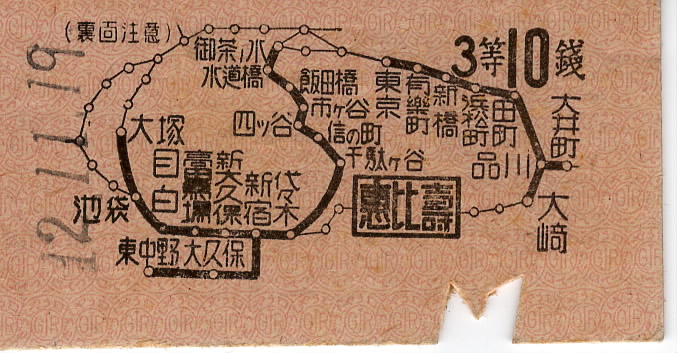 (裏面注意)
12.11.19
3等10錢
御茶ノ水
水道橋
飯田橋
市ヶ谷
四ッ谷
信の町
千駄ヶ谷
東京
有樂町
新橋
浜松町
田町
品川
大井町
大崎
惠比壽
代々木
新宿
新大久保
高田馬場
目白
池袋
大塚
東中野
大久保